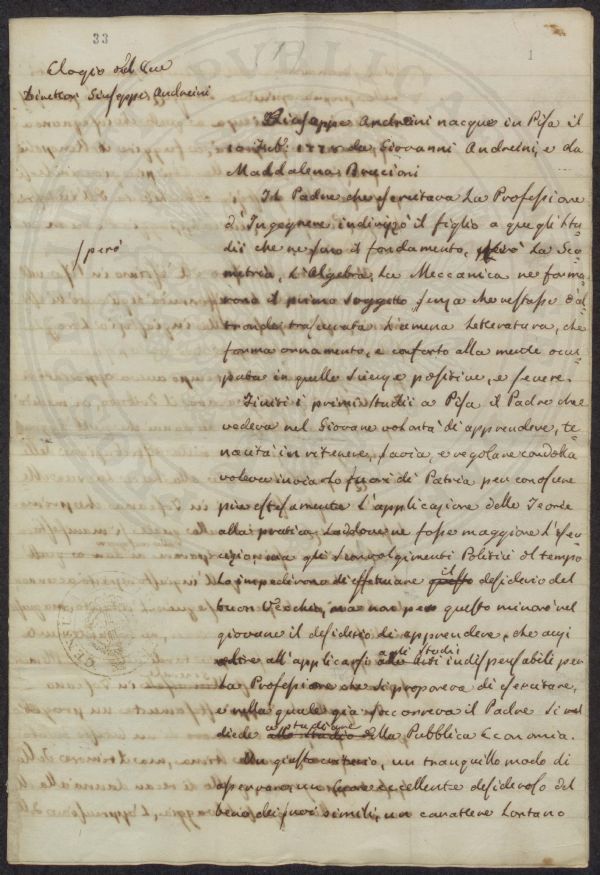 33
1
Elogio del Cav
Direttor Giuseppe Andreini
Giuseppe Andreini nacque in Pisa il
10 1775 da Giovanni Andreini, e da
Maddalena Bruccioni
Il Padre che esercitava La Professione
d'Ingegnere indirizzò il figlio a quegli Stu„
dii che ne sono il fondamento, però La Geo„
però
metria, L'Algebra, La Meccanica ne forma„
rono il primo soggetto senza che restasse d'al„
tronde trascurata L'amena Letteratura, che
forma ornamento, e conforto alla mente occu„
pata in quelle Scienze positive, e severe.
Finiti i primi Studii a Pisa il Padre che
vedeva nel Giovane volontà di apprendere, te„
nacità in ritenere, savia, e regolare condotta
voleva inviarlo fuori di Patria per conoscere
più estesamente L'applicazione delle Teorie
alla pratica, Laddove ne fosse maggiore L'eser„
cizio, ma gli sconvolgimenti Politici del tempo
Lo impedirono di effettuare questo il desiderio del
buon Vecchio, ma non per questo minorò nel
giovane il desiderio di apprendere, che anzi
oltre all'applicarsi agli studii indispensabili per
La Professione che si proponeva di esercitare,
e nella quale già soccorreva il Padre si ve
diede allo studio a studiare della Pubblica Economia.
Un giusto criterio, un tranquillo modo di
osservare, un Cuore eccellente desideroso del
bene dei suoi simili, un carattere Lontano